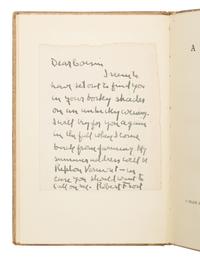 Dear Cousin
I seem to
have set out to find you
in your bosky shades
on an unlucky evening.
I will try for you again
in the fall when I come
back from farming. My
summer address will be
Ripton Vermont — in
case you should want to
call on me. Robert Frost
A